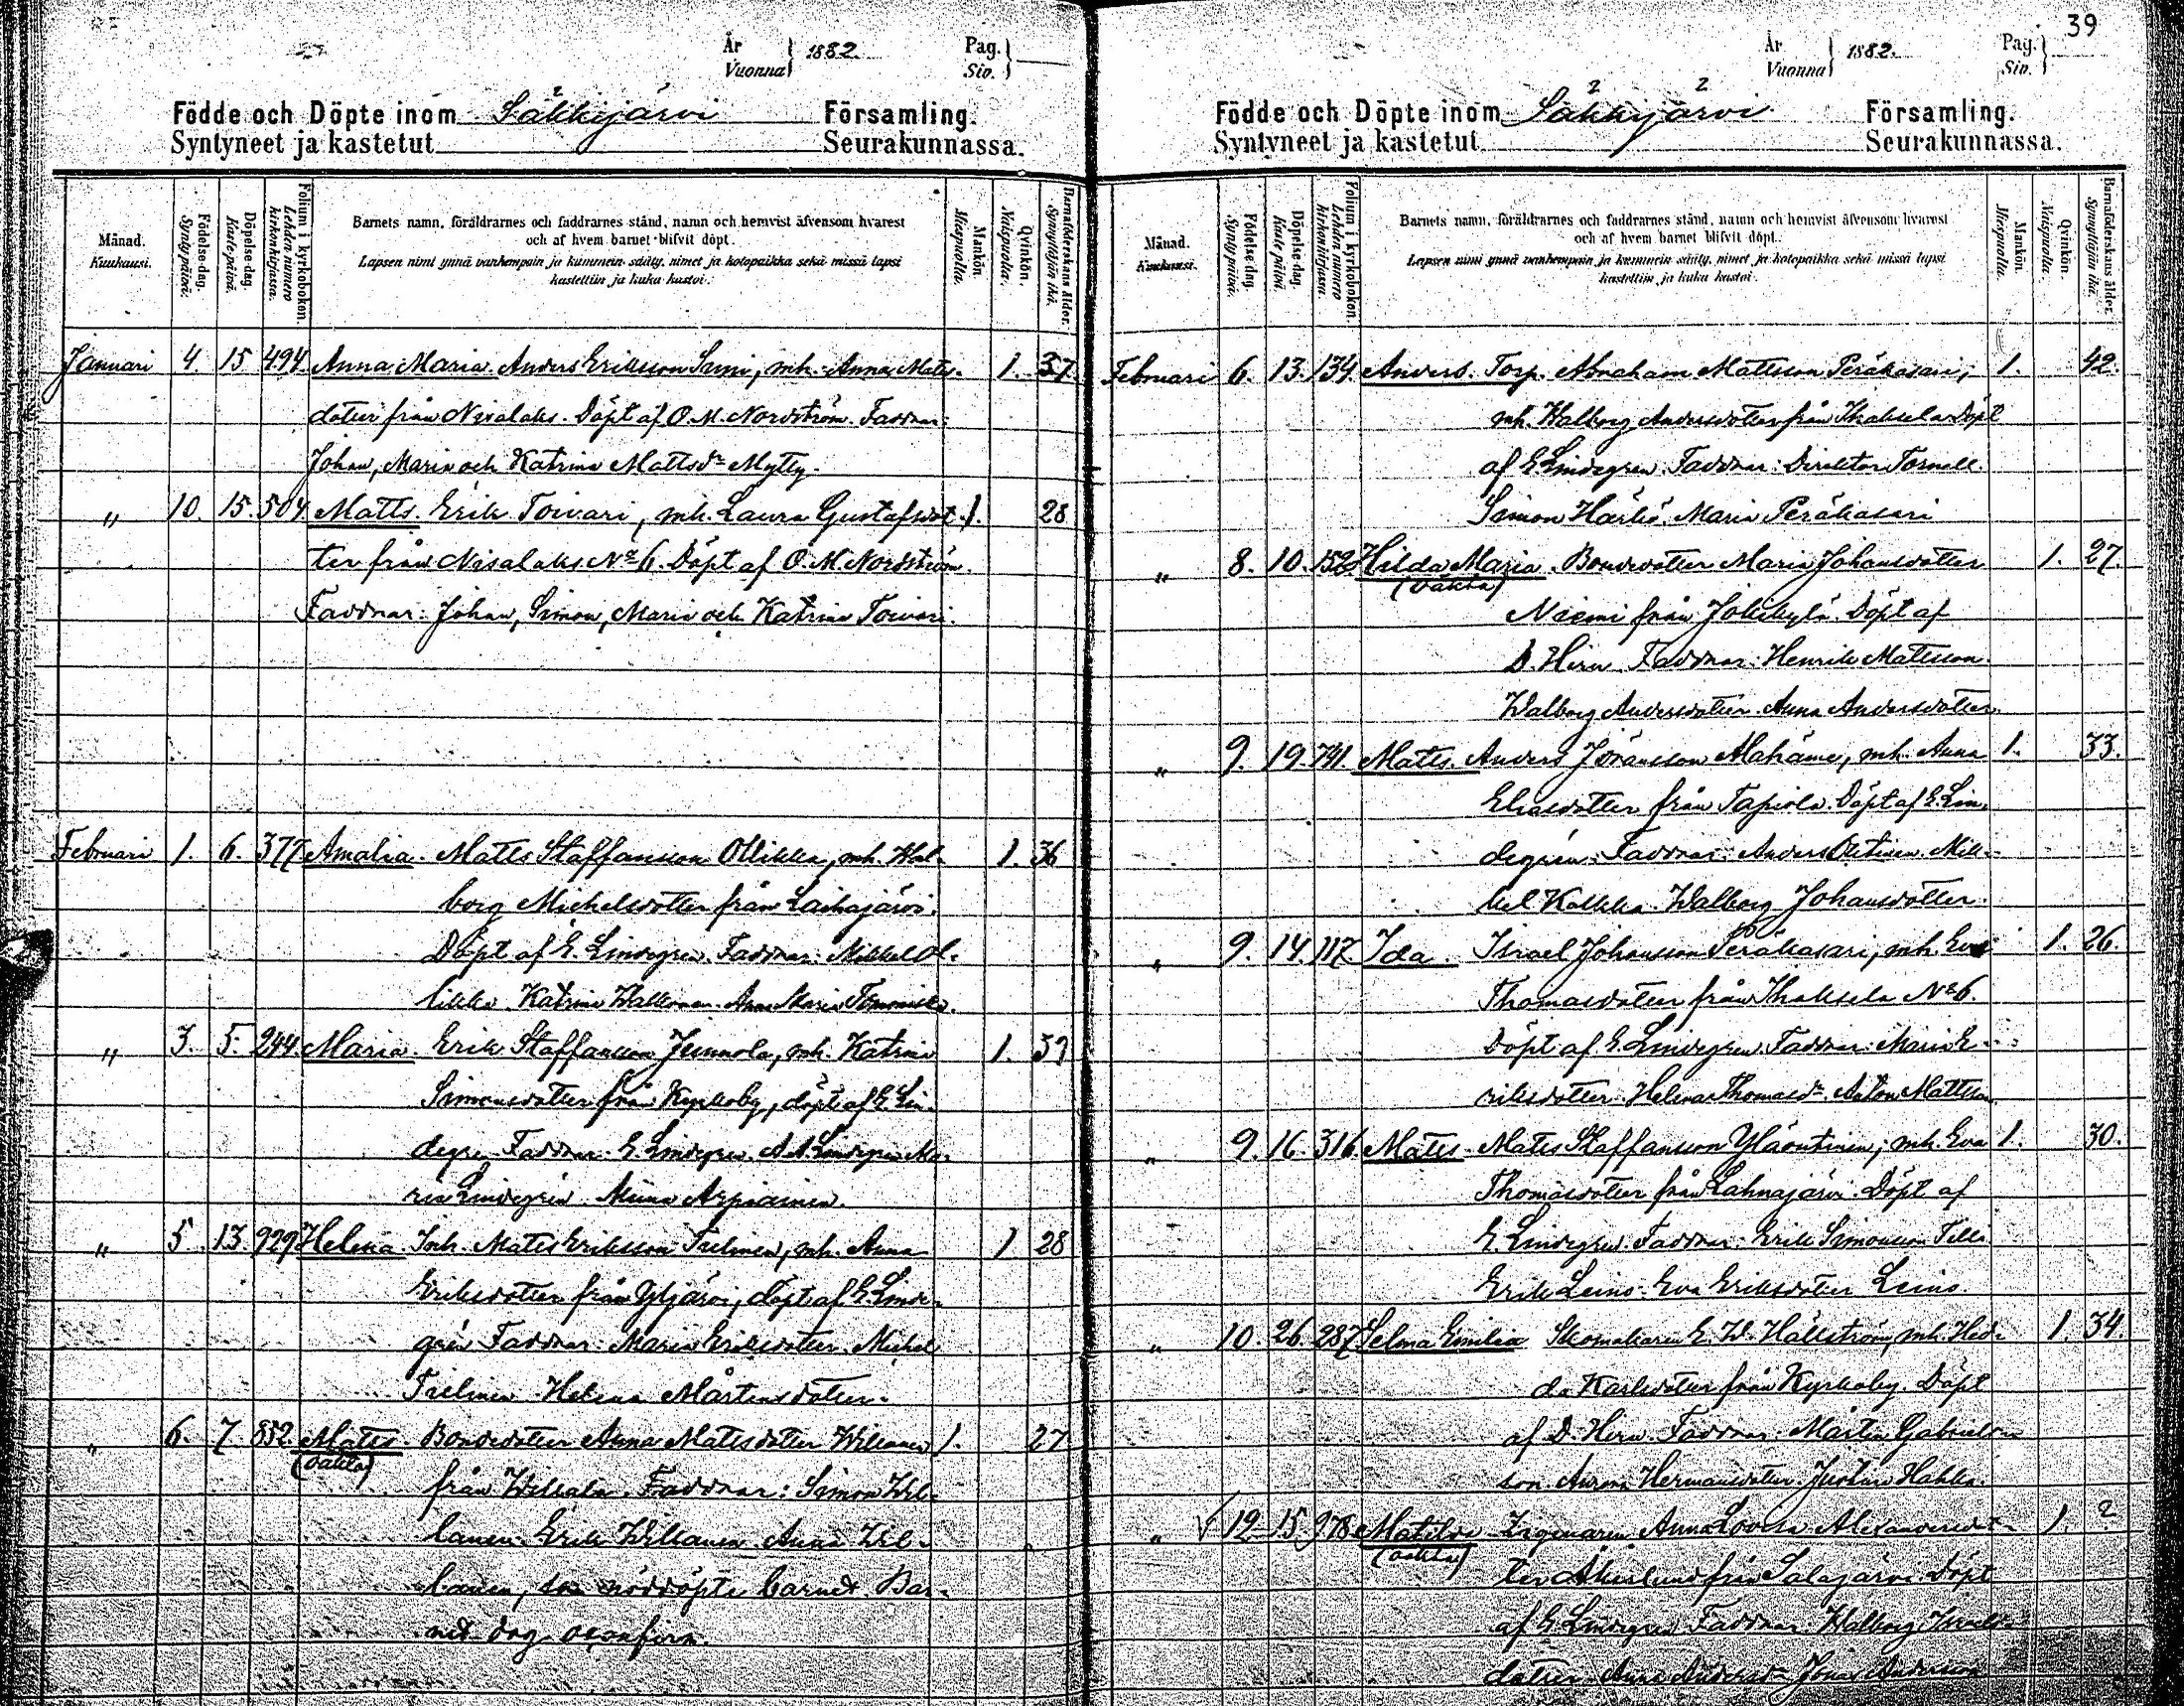 39
År Vuonna } 1882. Pag. Siv. }
Födde och Döpte inom Säkkijärvi Församling.
Syntyneet ja kastetut Seurakunnassa.
Månad. Kuukausi.
Födelse-dag. Syntypäivä.
Döpelse-dag. Kastepäivä.
Folium i kyrkoboken. Lehden numero kirkonkirjassa.
Barnets namn, föräldrarnes och faddrarnes stånd, namn och hemvist äfvensom hvarest
och af hvem barnet blifvit döpt.
Lapsen nimi ynnä vanhempain ja kummein sääty, nimet ja kotopaikka sekä missä lapsi
kastettiin ja kuka kastoi.
Mankön. Miespuolta.
Qvinkön. Naispuolta.
Barnaföderskans ålder. Synnyttäjän ikä.
Januari 4. 15 494. Anna Maria Anders Eriksson Suni, mh. Anna Matts- 1. 37.
dotter från Nisalaks. Döpt af O. M. Nordström. Faddrar:
Johan, Maria och Katrina Mattsdr Mytty.
" 10. 15. 504. Matts. Erik Toivari, mh. Laura Gustafsdot- 1. 28
ter från Nisalaks No 6. Döpt af O. M. Nordström.
Faddrar: Johan, Simon, Maria och Katrina Toivari.
Februari 1. 6. 377 Amalia. Matts Staffansson Ollikka, mh. Wal- 1. 36
borg Michelsdotter från Laihajärvi.
Döpt af E. Lindegren. Faddrar: Mikkel Ol-
likka. Katrina Walkonen. Anna Maria
" 3. 5. 244. Maria. Erik Staffansson Junnola, mh. Katrina 1. 39
Simonsdotter från Kyrkoby, döpt af E. Lin-
degren Faddrar: E. Lindegren. A. A. Lindegren Ma-
ria Lindegren. Miina Arpiainen.
" 5. 13. 929 Helena. Inh. Matts Eriksson Tielinen, mh. Anna 1 28
Eriksdotter från Ylijärvi, döpt af E. Linde-
gren Faddrar: Maria Eriksdotter. Michel
Tielinen Helena Mårtensdotter.
" 6. 7. 852. Matts. Bondedotter Anna Mattsdotter Willanen 1. 27
(oäkta)
från Willala. Faddrar: Simon Wil-
lanen. Erik Willanen. Anna Wil-
lanen, som nöddöpte barnet. Bar-
net dog
År Vuonna } 1882. Pag. Siv. }
Födde och Döpte inom Säkkijärvi Församling.
Syntyneet ja kastetut Seurakunnassa.
Månad. Kuukausi.
Födelse-dag. Syntypäivä.
Döpelse-dag. Kastepäivä.
Folium i kyrkoboken. Lehden numero kirkonkirjassa.
Barnets namn, föräldrarnes och faddrarnes stånd, namn och hemvist äfvensom hvarest
och af hvem barnet blifvit döpt.
Lapsen nimi ynnä vanhempain ja kummein sääty, nimet ja kotopaikka sekä missä lapsi
kastettiin ja kuka kastoi.
Mankön. Miespuolta.
Qvinkön. Naispuolta.
Barnaföderskans ålder. Synnyttäjän ikä.
Februari 6. 13. 134. Anders. Torp. Abraham Mattsson Peräkasari, 1. 42.
mh. Walborg Andersdotter från Ihaksela Döpt
af E Lindegren. Faddrar: Direktor Tornell.
Simon Härkö. Maria Peräkasari
" 8. 10. 152. Hilda Maria. Bondedotter Maria Johansdotter 1. 27.
(oäkta)
Niemi från Jokikylä. Döpt af
D. Hirn. Faddrar: Henrik Mattsson.
Walborg Andersdotter. Anna Andersdotter.
" 9. 19. 741. Matts. Anders Jöransson Mahäme, mh. Anna 1. 33.
Eliasdotter från Tapiola. Döpt af E. Lin-
degren. Faddrar: Anders Mik-
kel Kokkla. Walborg Johansdotter.
" 9. 14. 117. Ida. Israel Johansson Peräkasari, mh. Eva 1. 26.
Thomasdotter från Ihaksela No 6.
Döpt af E. Lindegren. Faddrar: Maria E-
riksdotter. Helena Thomasdr. Anton Mattsson.
" 9. 16. 316. Matts. Matts Staffansson Yläoutinen, mh. Eva 1. 30.
Thomasdotter från Lahnajärvi. Döpt af
E. Lindegren. Faddrar: Erik Simonsson Tilli
Erik Leino. Eva Eriksdotter Leino.
" 10. 26. 287 Selma Emilia Skomakaren E. W. Hällström, mh. Hed- 1. 34.
da Karlsdotter från Kyrkoby. Döpt
af D. Hirn. Faddrar: Mårten Gabriels-
son. Aurora Hermansdotter. Justina Hakka.
" 12. 15. 978 Matilda Zigenaren Anna Lovisa Alexandersdot- 1. ?
(oäkta)
ter Åkerlund från Salajärvi. Döpt
af E. Lindegren. Faddrar: Walborg Israels-
dotter. Anna Andersdr. Jonas Andersson